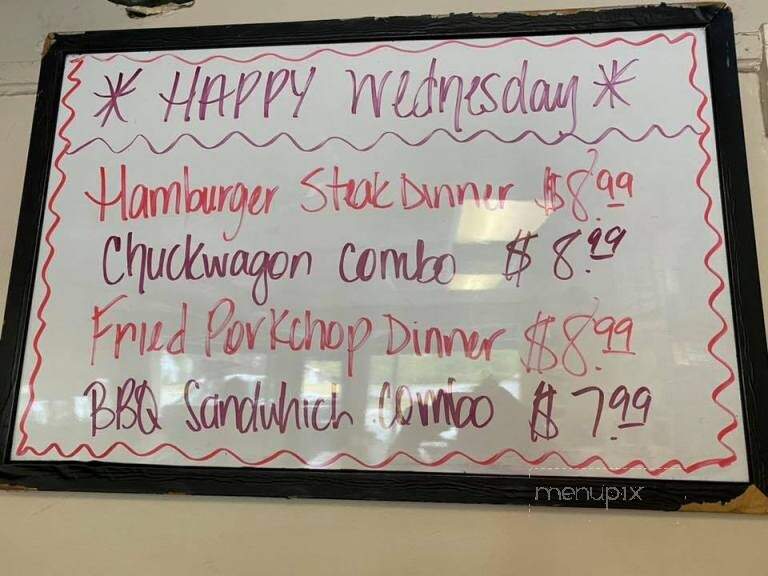 * HAPPY Wednesday *
Hamburger Steak Dinner $8.99
Chuckwagon Combo $8.99
Fried Porkchop Dinner $8.99
BBQ Sandwhich Combo $7.99
menupix